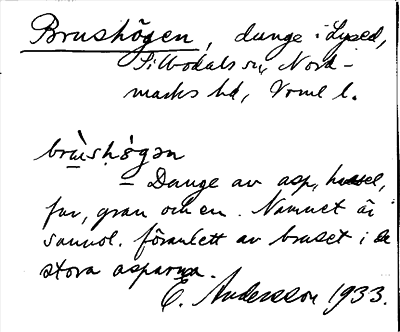 Brushögen, dunge i Lysed,
Silbodals sn, Nord-
marks hd, Vrml l.
brùshö̀gən
– Dunge av asp, hassel,
fur, gran och en. Namnet är
sannol. föranlett av bruset i de
stora asparna.
E. Andersson 1933.